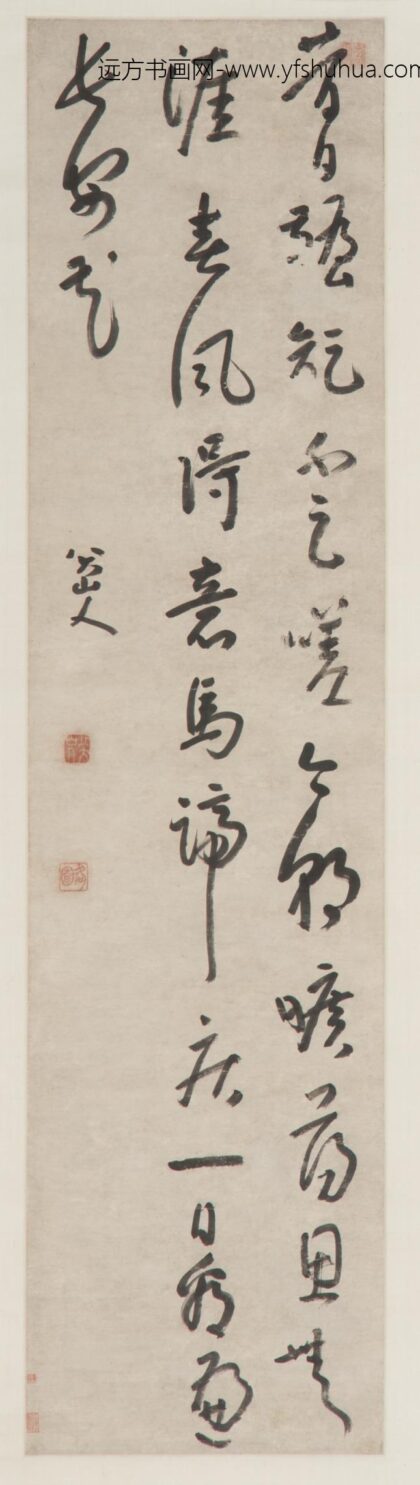 远方书画网-www.yfshuhua.com
昔日不足嗟今朝曠蕩恩無
涯春風得意馬蹄疾一日看遍
長安花
八大山人